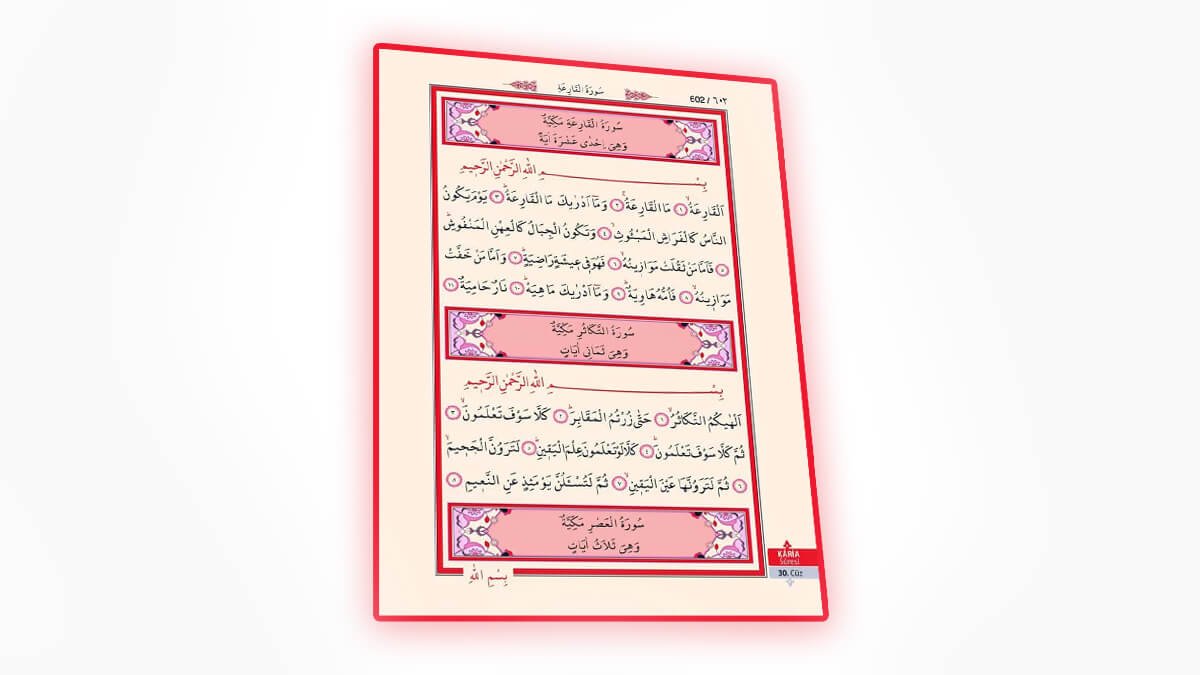 سُورَةُ الْقَارِعَةِ
602 / ٦٠٢
سُورَةُ الْقَارِعَةِ مَكِّيَّةٌ
وَهِيَ اِحْدٰى عَشْرَةَ اٰيَةً
بِسْمِ اللّٰهِ الرَّحْمٰنِ الرَّح۪يمِ
اَلْقَارِعَةُۙ ١ مَا الْقَارِعَةُۚ ٢ وَمَٓا اَدْرٰيكَ مَا الْقَارِعَةُۜ ٣ يَوْمَ يَكُونُ
النَّاسُ كَالْفَرَاشِ الْمَبْثُوثِۙ ٤ وَتَكُونُ الْجِبَالُ كَالْعِهْنِ الْمَنْفُوشِۜ
٥ فَاَمَّا مَنْ ثَقُلَتْ مَوَاز۪ينُهُۙ ٦ فَهُوَ ف۪ي ع۪يشَةٍ رَاضِيَةٍۜ ٧ وَاَمَّا مَنْ خَفَّتْ
مَوَاز۪ينُهُۙ ٨ فَاُمُّهُ هَاوِيَةٌۜ ٩ وَمَٓا اَدْرٰيكَ مَا هِيَهْۜ ١٠ نَارٌ حَامِيَةٌ ١١
سُورَةُ التَّكَاثُرِ مَكِّيَّةٌ
وَهِيَ ثَمَانِي اٰيَاتٍ
بِسْمِ اللّٰهِ الرَّحْمٰنِ الرَّح۪يمِ
اَلْهٰيكُمُ التَّكَاثُرُۙ ١ حَتّٰى زُرْتُمُ الْمَقَابِرَۜ ٢ كَلَّا سَوْفَ تَعْلَمُونَۙ ٣
ثُمَّ كَلَّا سَوْفَ تَعْلَمُونَۜ ٤ كَلَّا لَوْ تَعْلَمُونَ عِلْمَ الْيَق۪ينِۜ ٥ لَتَرَوُنَّ الْجَح۪يمَۙ
٦ ثُمَّ لَتَرَوُنَّهَا عَيْنَ الْيَق۪ينِۙ ٧ ثُمَّ لَتُسْـَٔلُنَّ يَوْمَئِذٍ عَنِ النَّع۪يمِ ٨
سُورَةُ الْعَصْرِ مَكِّيَّةٌ
وَهِيَ ثَلَاثُ اٰيَاتٍ
بِسْمِ اللّٰهِ
KÂRİA
Sûresi
30. Cüz